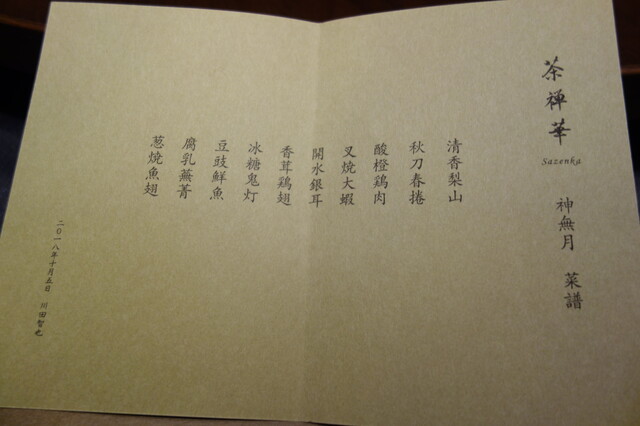 茶禅華
Sazenka
神無月 菜譜
清香梨山
秋刀春捲
酸橙鶏肉
叉焼大蝦
開水銀耳
香茸鶏翅
冰糖鬼灯
豆豉鮮魚
腐乳蕪菁
葱焼魚翅
二〇一八年十月五日 川田智也